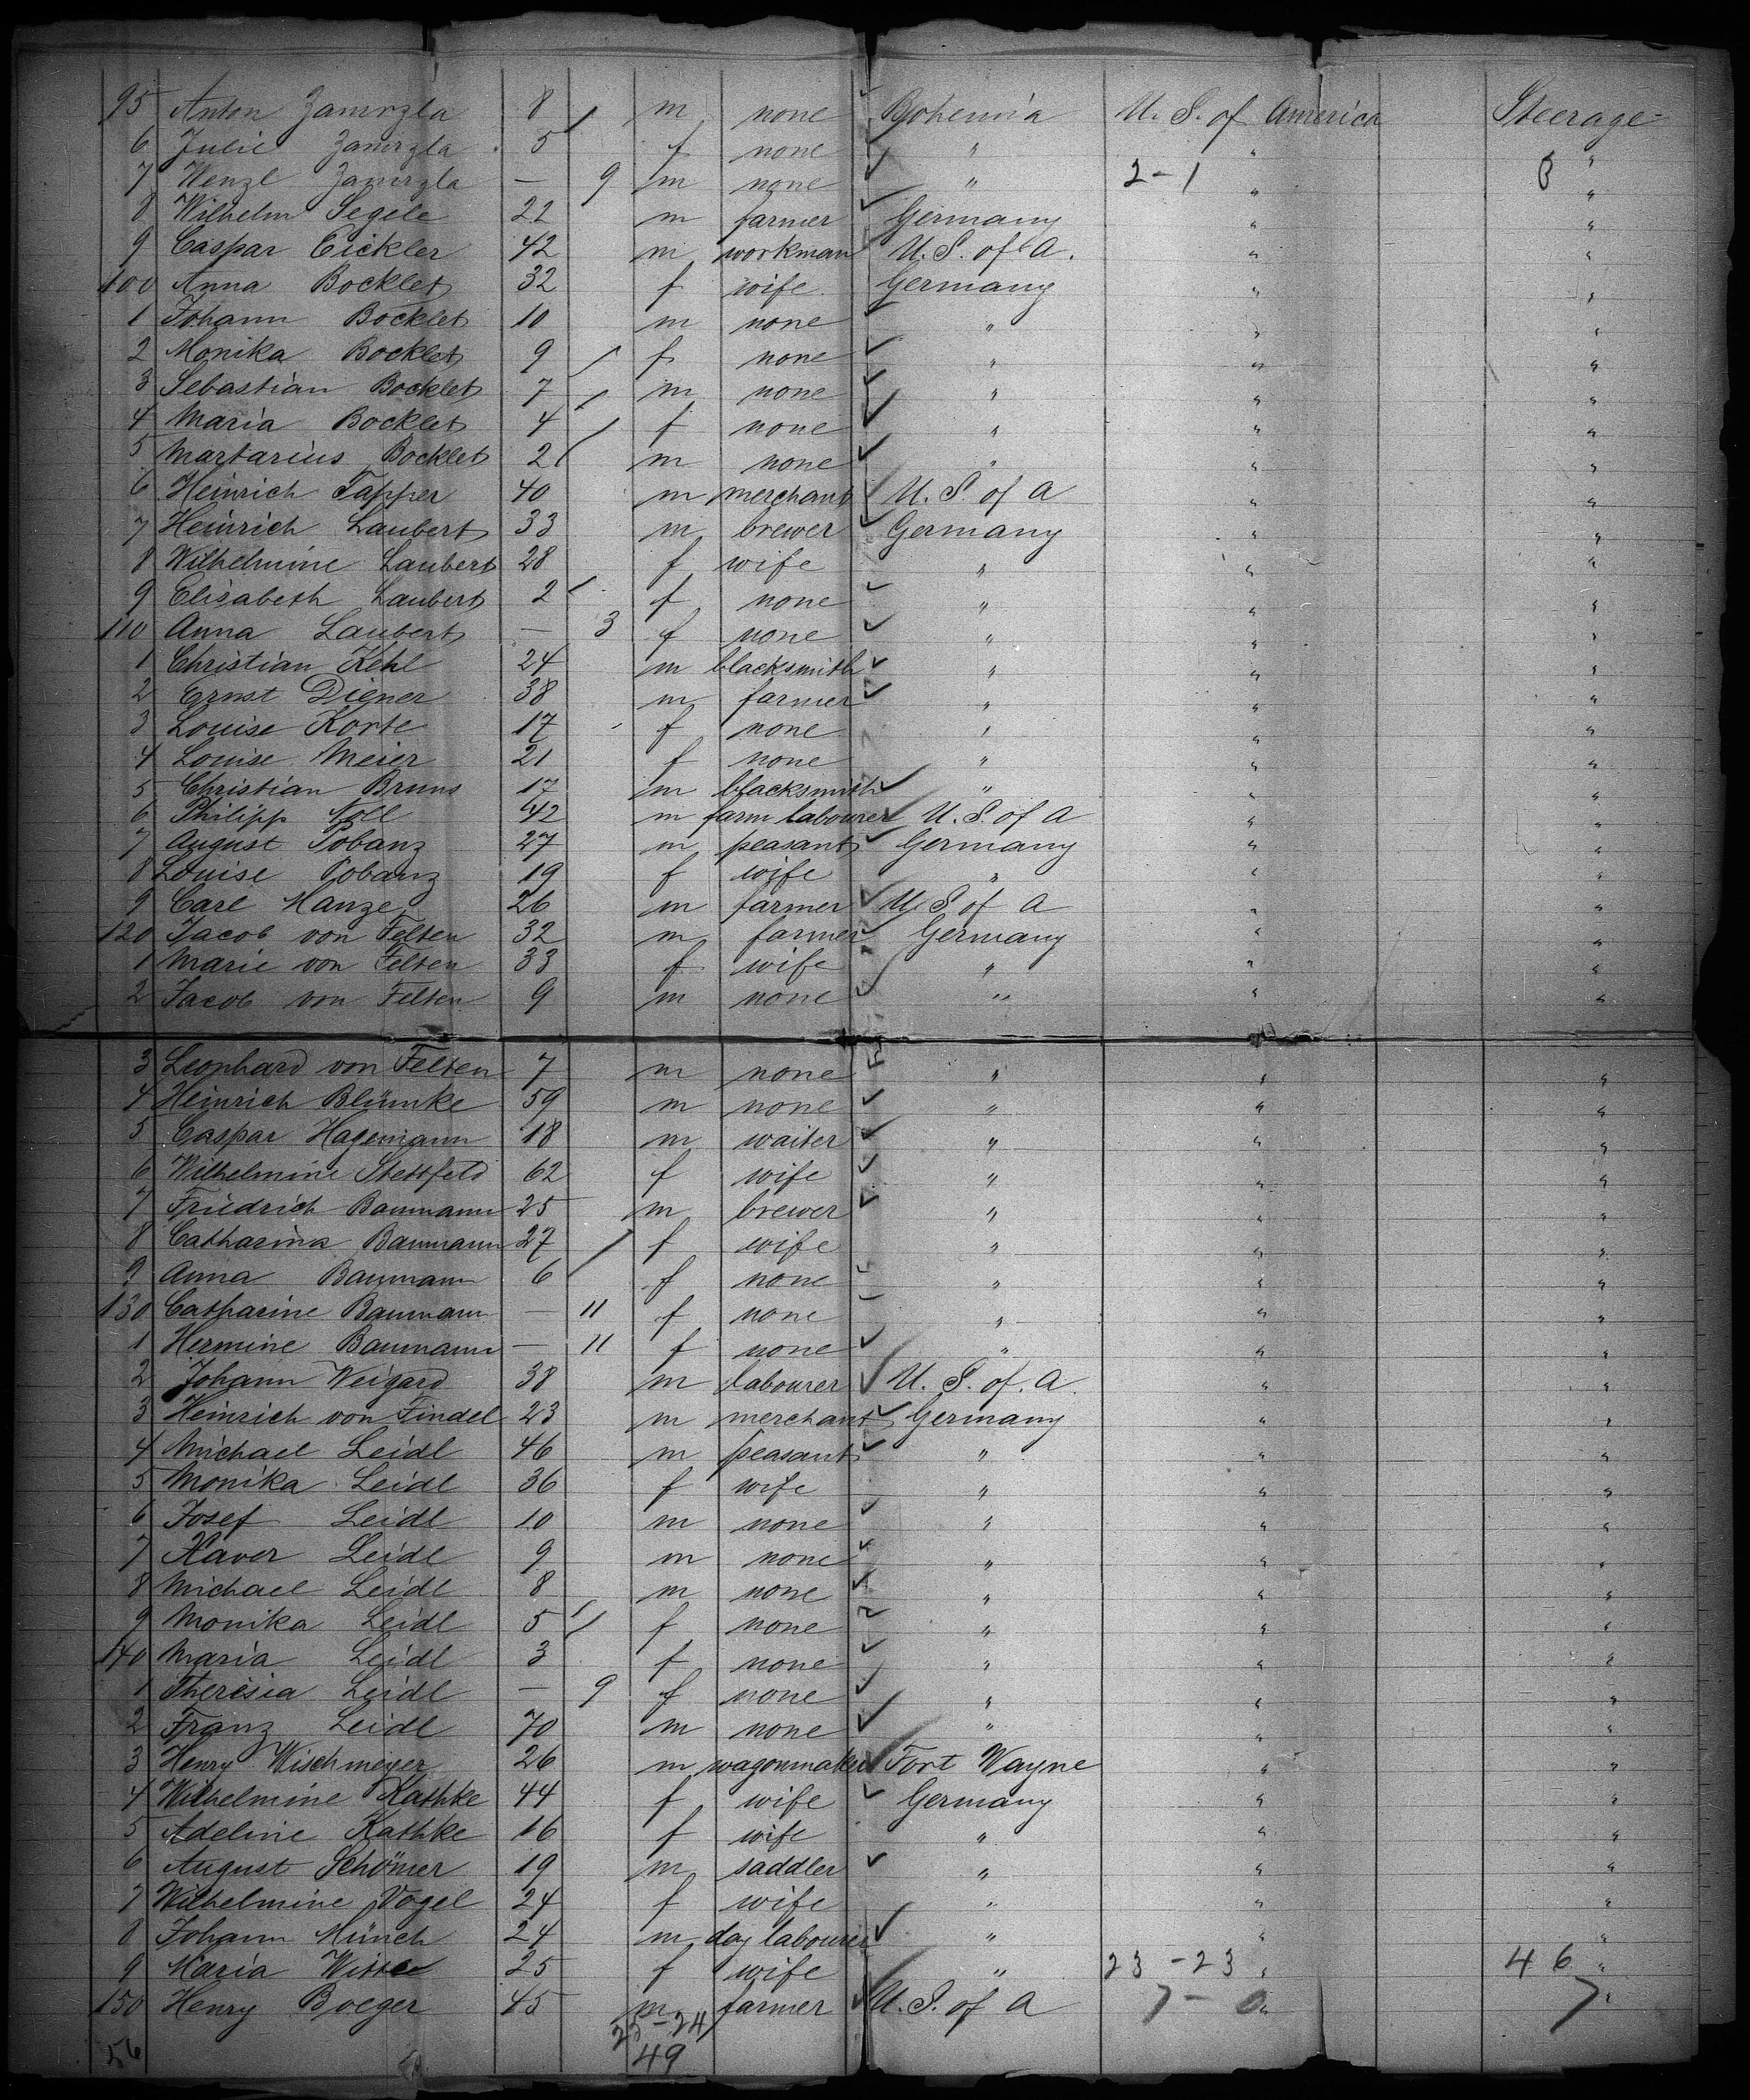 95 Anton Zamrzla 8 m none Bohemia U. S. of America Steerage
6 Julie Zamrzla 5 f none " " "
7 Wenzl Zamrzla — 9 m none " 2-1 " 3 "
8 Wilhelm Segele 22 m farmer Germany " "
9 Caspar Eickler 42 m workman U. S. of A. " "
100 Anna Bocklet 32 f wife Germany " "
1 Johann Bocklet 10 m none " " "
2 Monika Bocklet 9 f none " " "
3 Sebastian Bocklet 7 m none " " "
4 Maria Bocklet 4 f none " " "
5 Martarius Bocklet 2 m none " " "
6 Heinrich Tapper 40 m merchant U. S. of A " "
7 Heinrich Laubert 33 m brewer Germany " "
8 Wilhelmine Laubert 28 f wife " " "
9 Elisabeth Laubert 2 f none " " "
110 Anna Laubert — 3 f none " " "
1 Christian Kehl 24 m blacksmith " " "
2 Ernst Diener 38 m farmer " " "
3 Louise Korte 17 f none " " "
4 Louise Meier 21 f none " " "
5 Christian Bruns 17 m blacksmith " " "
6 Philipp Noll 42 m farm labourer U. S. of A " "
7 August Pobanz 27 m peasant Germany " "
8 Louise Pobanz 19 f wife " " "
9 Carl Manze 26 m farmer U. S. of A " "
120 Jacob von Felten 32 m farmer Germany " "
1 Marie von Felten 33 f wife " " "
2 Jacob von Felten 9 m none " " "
3 Leonhard von Felten 7 m none " " "
4 Heinrich Blümke 59 m none " " "
5 Caspar Hagemann 18 m waiter " " "
6 Wilhelmine Stettfeld 62 f wife " " "
7 Friedrich Baumann 25 m brewer " " "
8 Catharina Baumann 27 f wife " " "
9 Anna Baumann 6 f none " " "
130 Catharine Baumann — 11 f none " " "
1 Hermine Baumann — 11 f none " " "
2 Johann Weigard 38 m labourer U. S. of. A. " "
3 Heinrich von Findel 23 m merchant Germany " "
4 Michael Leidl 46 m peasant " " "
5 Monika Leidl 36 f wife " " "
6 Josef Leidl 10 m none " " "
7 Xaver Leidl 9 m none " " "
8 Michael Leidl 8 m none " " "
9 Monika Leidl 5 f none " " "
140 Maria Leidl 3 f none " " "
1 Theresia Leidl — 9 f none " " "
2 Franz Leidl 70 m none " " "
3 Henry Wischmeyer 26 m wagonmaker Fort Wayne " "
4 Wilhelmine Kathke 44 f wife Germany " "
5 Adeline Kathke 16 f wife " " "
6 August Schömer 19 m saddler " " "
7 Wilhelmine Vogel 24 f wife " " "
8 Johann Münch 24 m day labourer " " "
9 Maria Witte 25 f wife " 23-23 " 46 "
150 Henry Boeger 45 m farmer U. S. of A 7-0 " 7 "
25-24
56 49